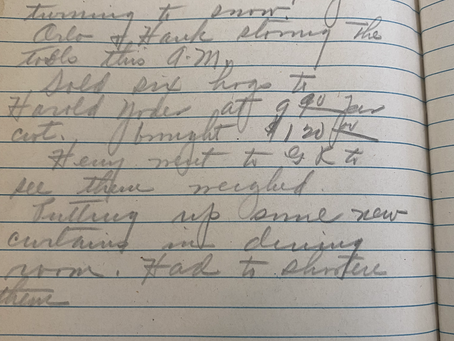 turning to snow.
Orlo & Hank storing the
tools this A.M.
Sold six hogs to
Harold Yoder at 9 90 per
cwt. brought $120 00
Henry went to G K to
see them weighed.
Putting up some new
curtains in dining
room. Had to shorten
them